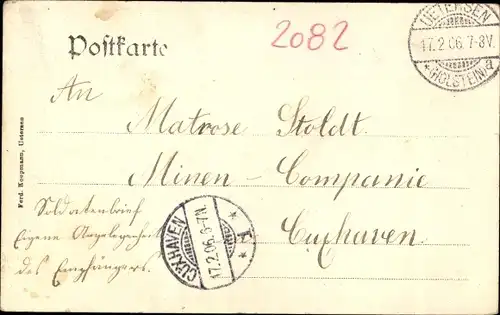 Postkarte
2082
UETERSEN
17.2.06.7-8V.
*(HOLSTEIN)a
An
Matrose Stoldt.
Minen-Companie
Cuxhaven.
Soldatenbrief
Eigene Angelegenheit
des Empfängers.
CUXHAVEN
17.2.06.6-7N.
* 1. *
Ferd. Koopmann, Uetersen